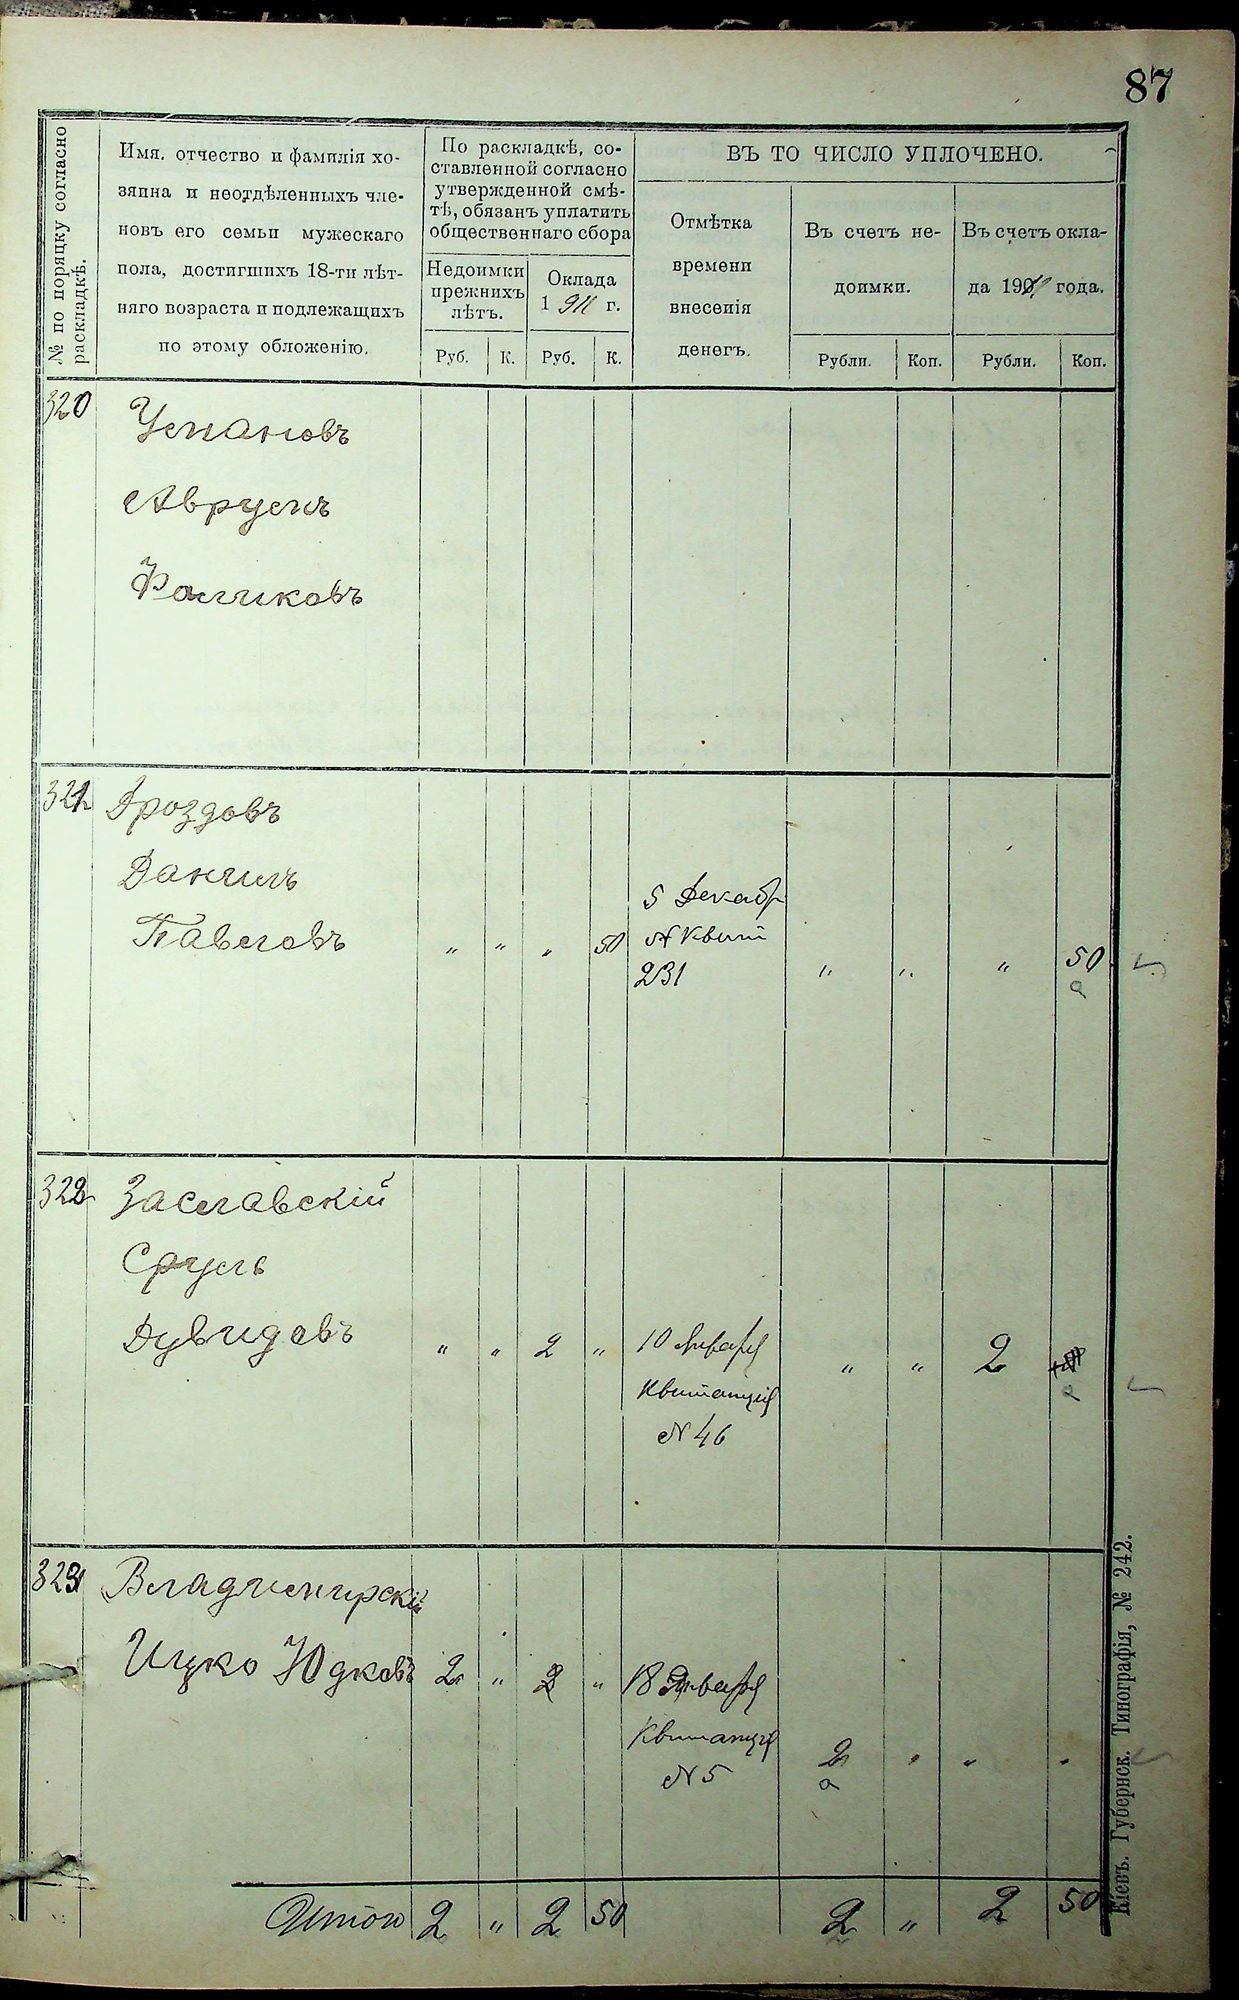 87
№ по порядку согласно
раскладкѣ.
Имя, отчество и фамилія хо-
зяина и неотдѣленныхъ чле-
новъ его семьи мужескаго
пола, достигшихъ 18-ти лѣт-
няго возраста и подлежащихъ
по этому обложенію.
По раскладкѣ, со-
ставленной согласно
утвержденной смѣ-
тѣ, обязанъ уплатить
общественнаго сбора
Недоимки
прежнихъ
лѣтъ.
Оклада
1911 г.
Руб. К. Руб. К.
ВЪ ТО ЧИСЛО УПЛОЧЕНО.
Отмѣтка
времени
внесенія
денегъ.
Въ счетъ не-
доимки.
Въ счетъ окла-
да 1911 года.
Рубли. Коп. Рубли. Коп.
320
Аврумъ
321 Дроздовъ
Данилъ
Павловъ " " " 50
5 Декабр
№ Квит
231
" " " 50
а
322 Заславскій
Сруль
Дувидовъ " " 2 "
10 Января
Квитанція
№ 46
" " 2
а
323 Владимирскій
Ицко Юдковъ 2 " 2 "
18 Января
Квитанція
№ 5
2 " " "
а
Итого 2 " 2 50 2 " 2 50
Кіевъ. Губернск. Типографія, № 242.